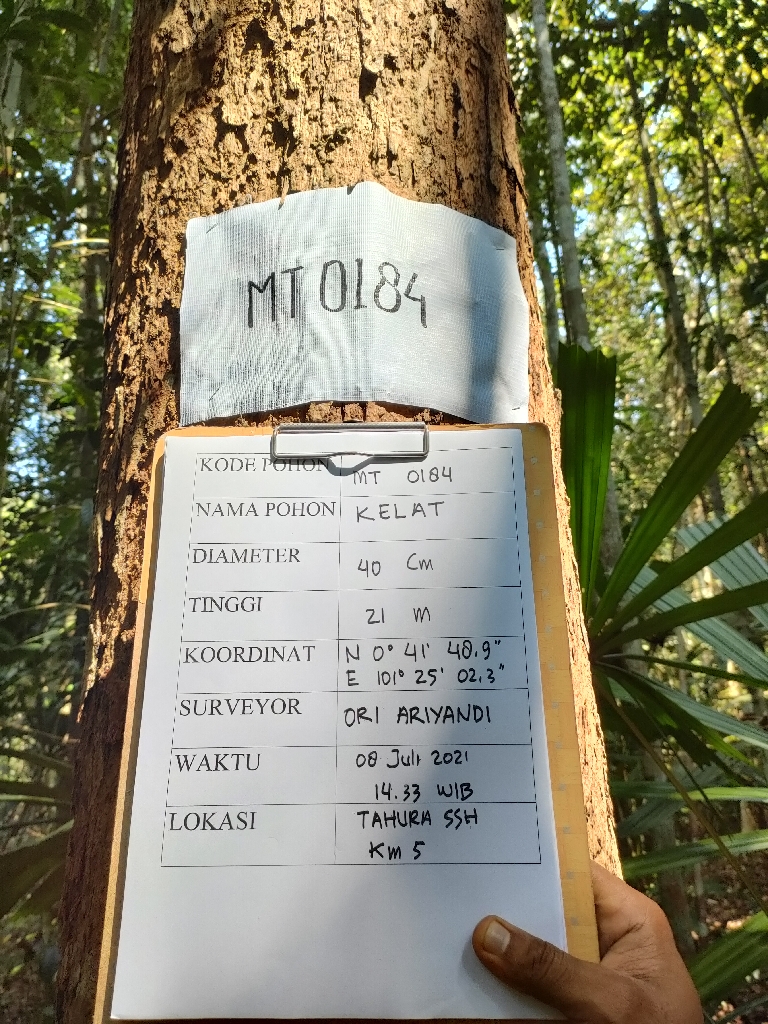 MT 0184
KODE POHON MT 0184
NAMA POHON KELAT
DIAMETER 40 Cm
TINGGI 21 m
KOORDINAT N 0° 41' 48.9"
E 101° 25' 02.3"
SURVEYOR ORI ARIYANDI
WAKTU 08 Juli 2021
14.33 WIB
LOKASI TAHURA SSH
Km 5